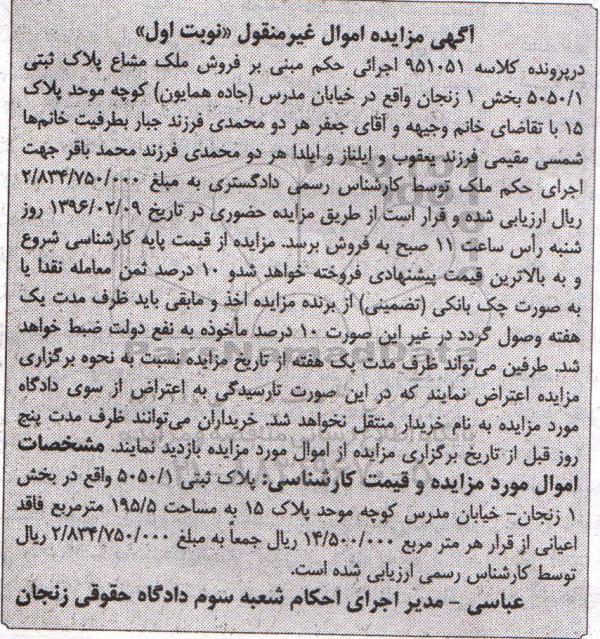 آگهی مزایده اموال غیرمنقول «نوبت اول»
درپرونده کلاسه ۹۵۱۰۵۱ اجرائی حکم مبنی بر فروش ملک مشاع پلاک ثبتی
۵۰۵۰/۱ بخش ۱ زنجان واقع در خیابان مدرس (جاده همایون) کوچه موحد پلاک
۱۵ با تقاضای خانم وجیهه و آقای جعفر هر دو محمدی فرزند جبار بطرفیت خانم‌ها
شمسی مقیمی فرزند یعقوب و ایلناز و ایلدا هر دو محمدی فرزند محمد باقر جهت
اجرای حکم ملک توسط کارشناس رسمی دادگستری به مبلغ ۲/۸۳۴/۷۵۰/۰۰۰
ریال ارزیابی شده و قرار است از طریق مزایده حضوری در تاریخ ۱۳۹۶/۰۲/۰۹ روز
شنبه رأس ساعت ۱۱ صبح به فروش برسد. مزایده از قیمت پایه کارشناسی شروع
و به بالاترین قیمت پیشنهادی فروخته خواهد شدو ۱۰ درصد ثمن معامله نقدا یا
به صورت چک بانکی (تضمینی) از برنده مزایده اخذ و مابقی باید ظرف مدت یک
هفته وصول گردد در غیر این صورت ۱۰ درصد مأخوذه به نفع دولت ضبط خواهد
شد. طرفین می‌تواند ظرف مدت یک هفته از تاریخ مزایده نسبت به نحوه برگزاری
مزایده اعتراض نمایند که در این صورت تارسیدگی به اعتراض از سوی دادگاه
مورد مزایده به نام خریدار منتقل نخواهد شد. خریداران می‌توانند ظرف مدت پنج
روز قبل از تاریخ برگزاری مزایده از اموال مورد مزایده بازدید نمایند. مشخصات
اموال مورد مزایده و قیمت کارشناسی: پلاک ثبتی ۵۰۵۰/۱ واقع در بخش
۱ زنجان- خیابان مدرس کوچه موحد پلاک ۱۵ به مساحت ۱۹۵/۵ مترمربع فاقد
اعیانی از قرار هر متر مربع ۱۴/۵۰۰/۰۰۰ ریال جمعاً به مبلغ ۲/۸۳۴/۷۵۰/۰۰۰ ریال
توسط کارشناس رسمی ارزیابی شده است.
عباسی - مدیر اجرای احکام شعبه سوم دادگاه حقوقی زنجان